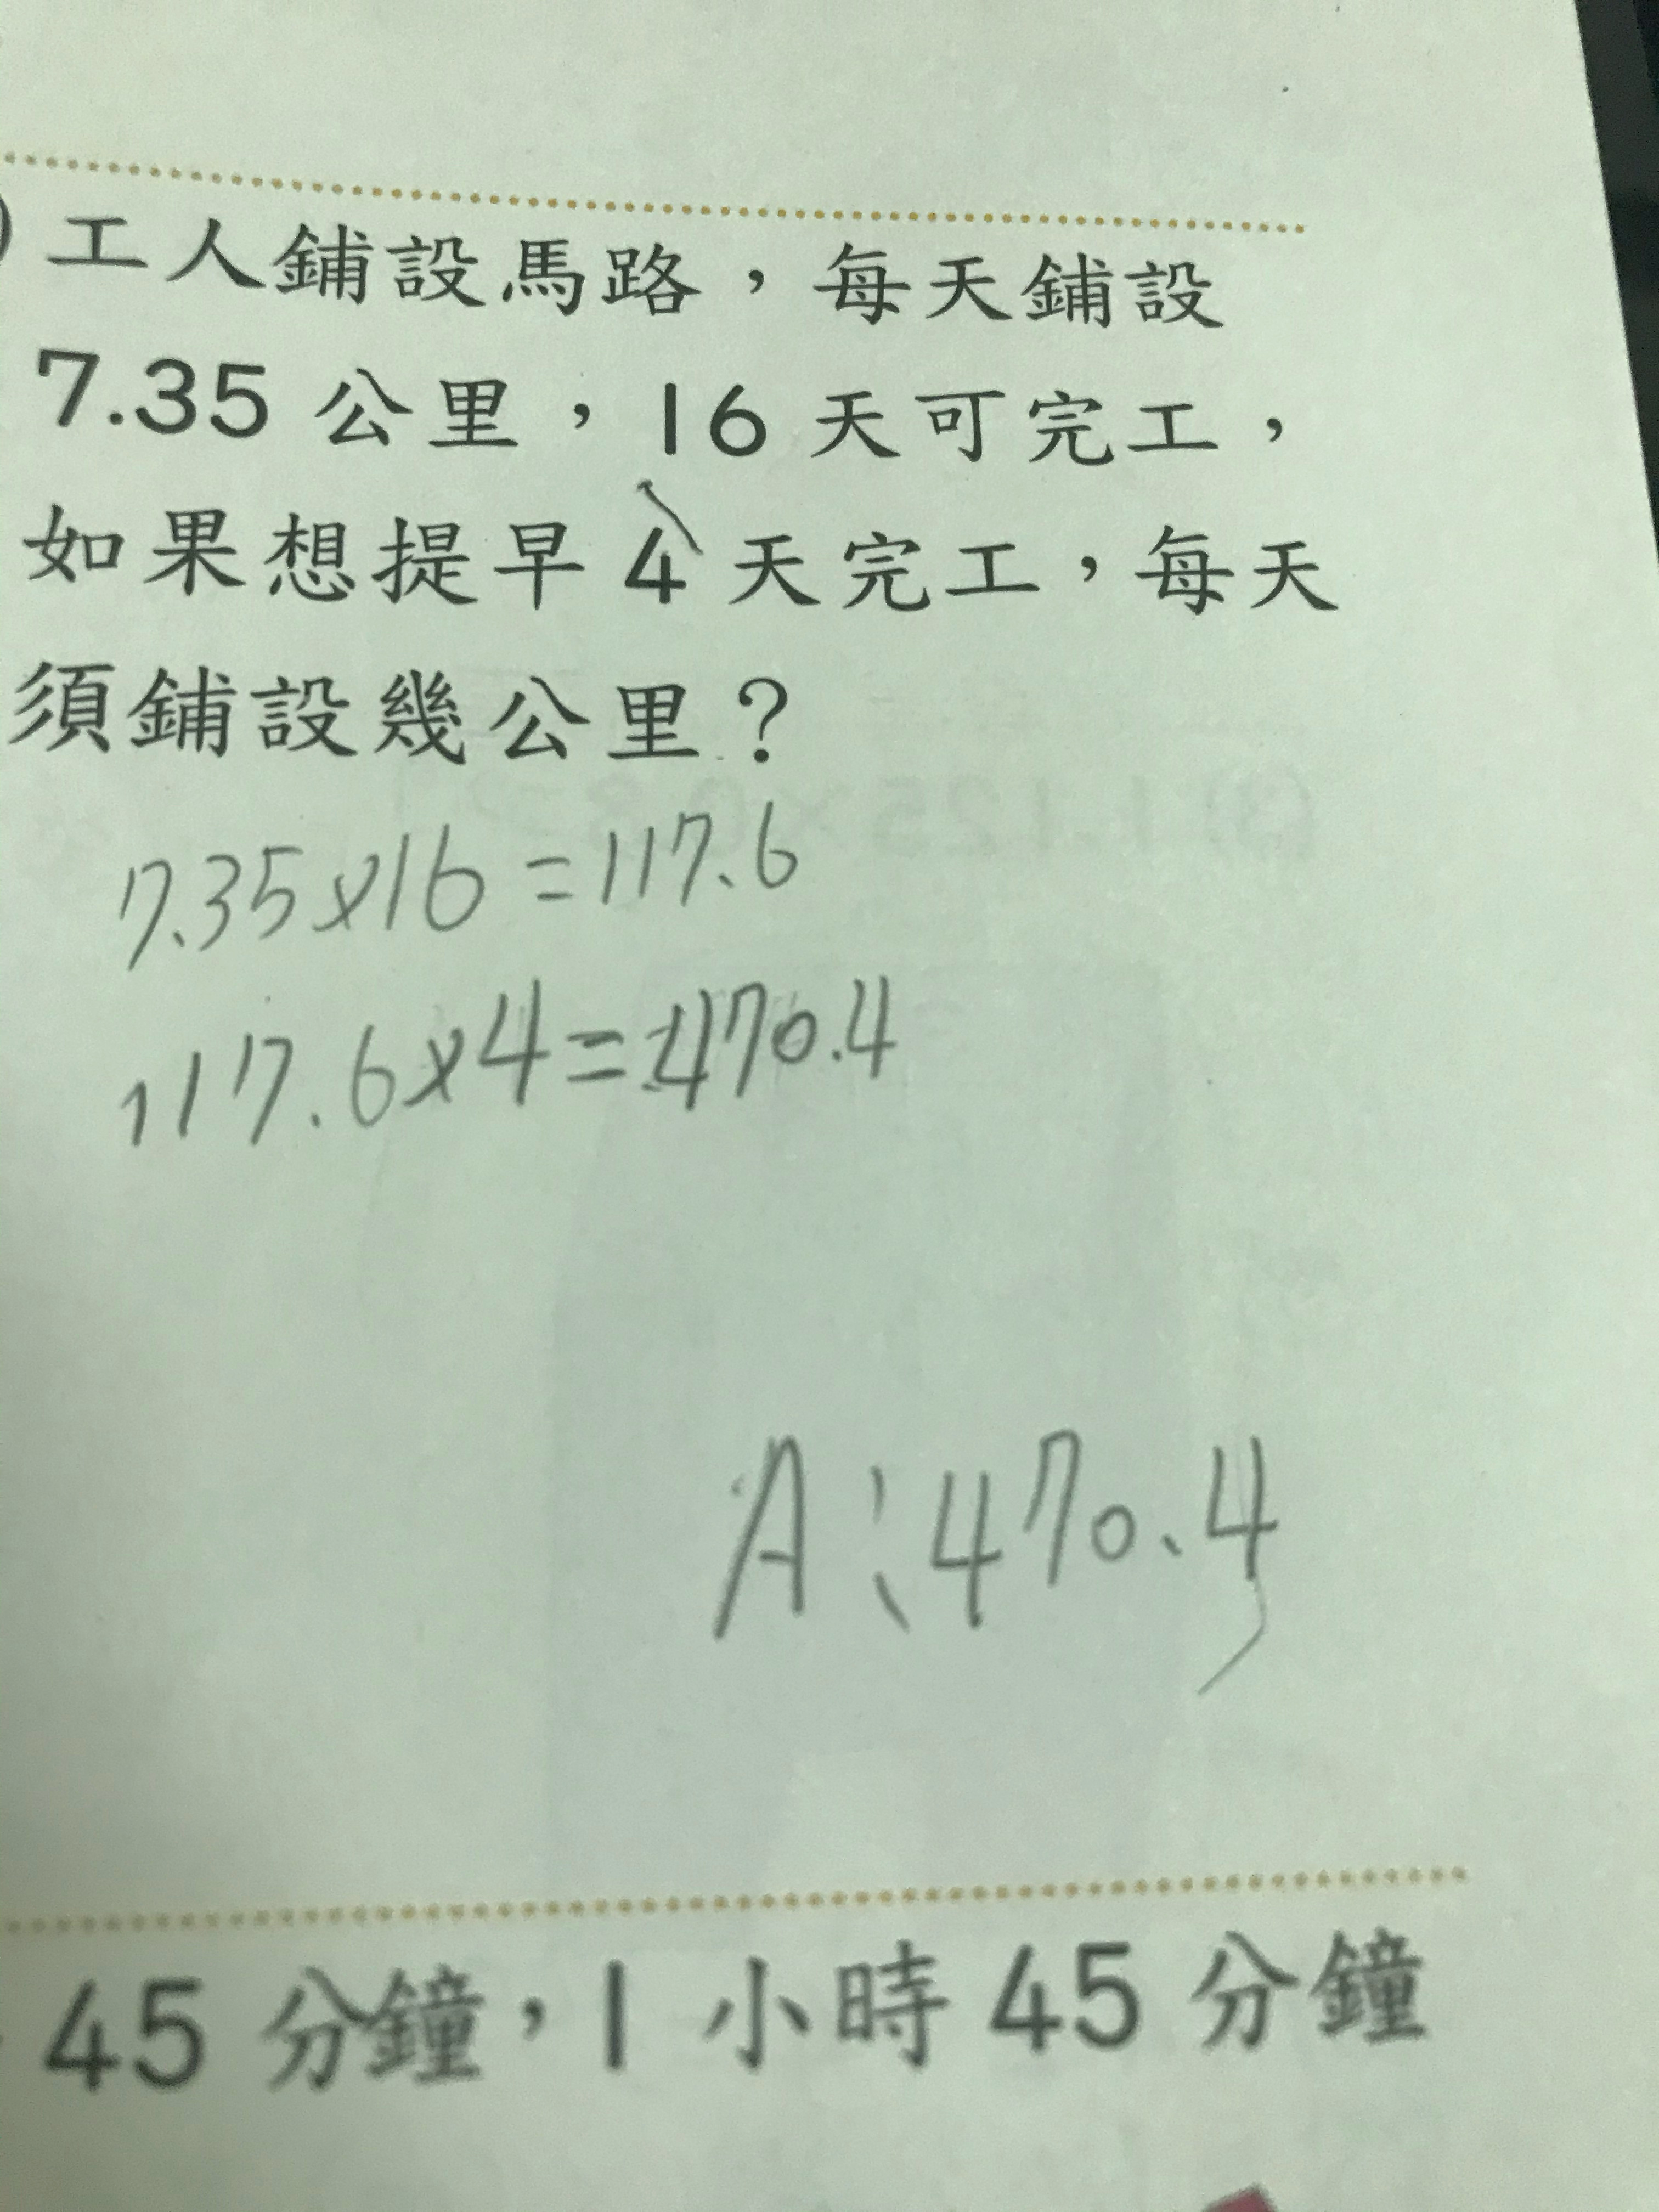 )工人鋪設馬路，每天鋪設
7.35 公里，16 天可完工，
如果想提早 4 天完工，每天
須鋪設幾公里？
7.35×16=117.6
117.6×4=470.4
A:470.4
45 分鐘，1 小時 45 分鐘